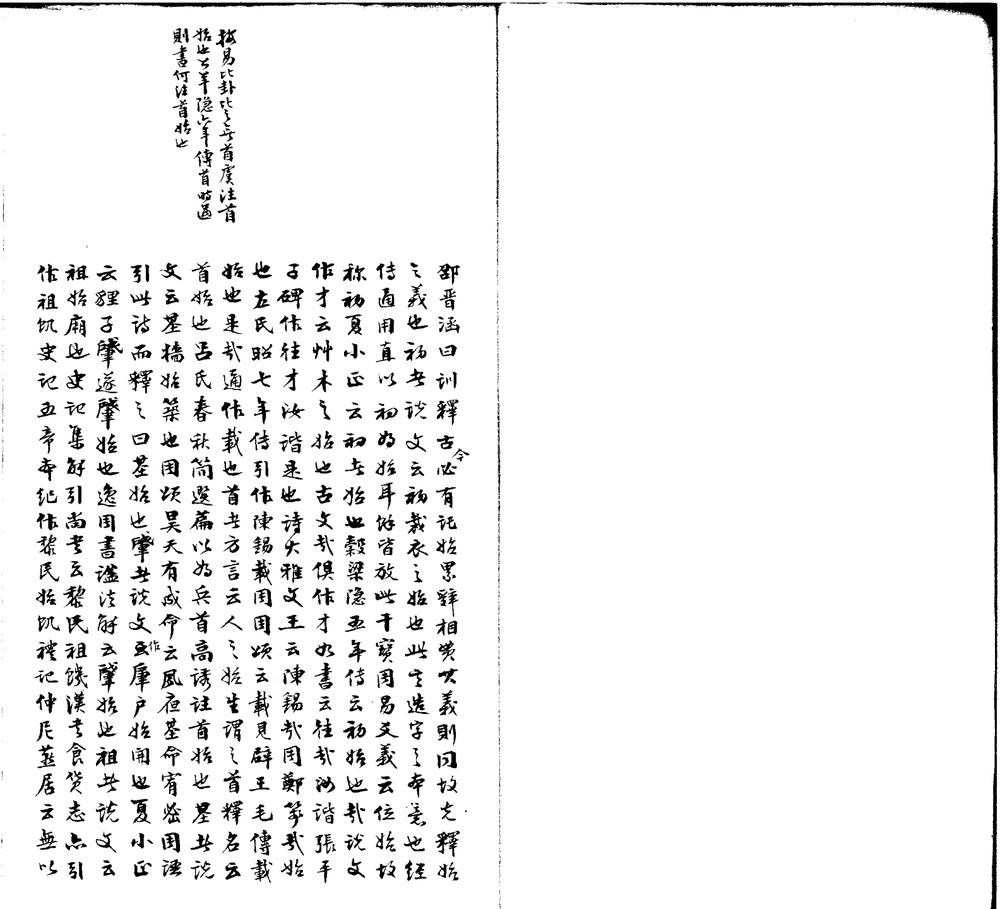 按易比卦比之无首虞注首
始也公羊隐六年傳首時過
則書何注首始也
邵晋涵曰訓釋古今必有託始累辞相賛其義則同故先釋始
之義也初者説文云初裁衣之始也此皆造字之本意也經
傳通用直以初為始耳餘皆放此干寳周易爻義云位始故
称初夏小正云初者始也穀梁隐五年傳云初始也哉説文
作才云艸木之始也古文哉俱作才如書云往哉汝諧張平
子碑作往才汝諧是也詩大雅文王云陳錫哉周鄭箋哉始
也左氏昭七年傳引作陳錫載周周頌云載見辟王毛傳載
始也是哉通作載也首者方言云人之始生謂之首釋名云
首始也吕氏春秋简選篇以為兵首高誘註首始也基者説
文云基牆始築也周頌昊天有成命云夙夜基命宥密周語
引此詩而釋之曰基始也肇者説文作肁户始開也夏小正
云貍子肇遂肇始也逸周書謚法解云肇始也祖者説文云
祖始廟也史記集解引尚書云黎民祖饑漢書食貨志亦引
作祖飢史記五帝本纪作黎民始飢禮記仲尼燕居云無以